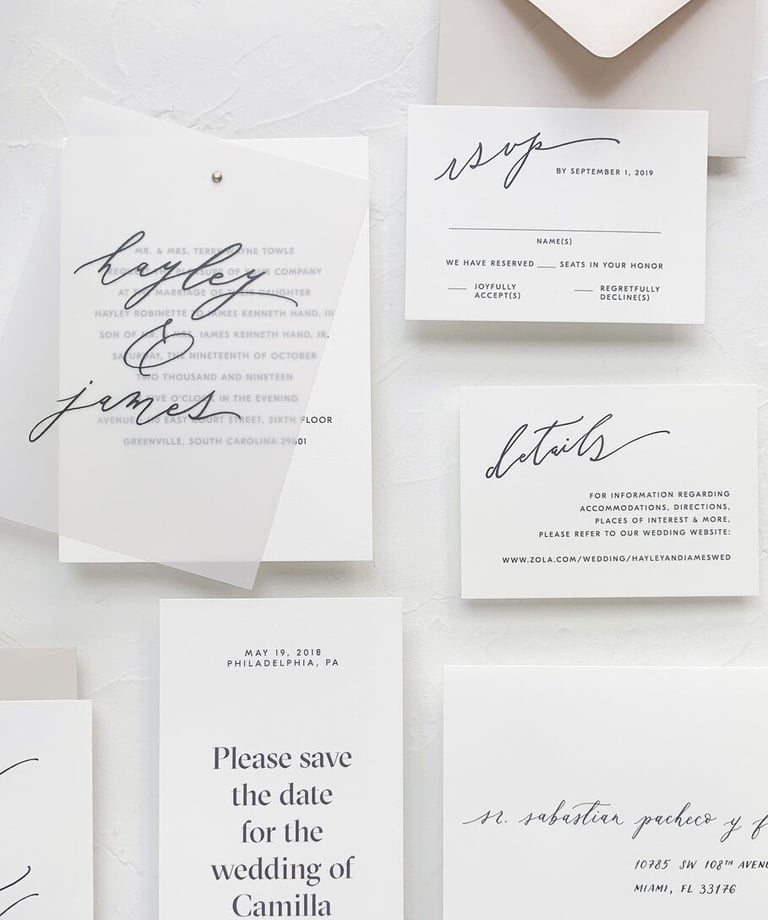 hayley
&
james
MR. & MRS. TERRY WAYNE TOWLE
REQUEST THE PLEASURE OF YOUR COMPANY
AT THE MARRIAGE OF THEIR DAUGHTER
HAYLEY ROBINETTE TO JAMES KENNETH HAND, III
SON OF MR. & MRS. JAMES KENNETH HAND, JR.
SATURDAY, THE NINETEENTH OF OCTOBER
TWO THOUSAND AND NINETEEN
FIVE O'CLOCK IN THE EVENING
AVENUE, EAST COURT STREET, SIXTH FLOOR
GREENVILLE, SOUTH CAROLINA 29601
rsvp
BY SEPTEMBER 1, 2019
NAME(S)
WE HAVE RESERVED ___ SEATS IN YOUR HONOR
___ JOYFULLY
ACCEPT(S)
___ REGRETFULLY
DECLINE(S)
details
FOR INFORMATION REGARDING
ACCOMMODATIONS, DIRECTIONS,
PLACES OF INTEREST & MORE,
PLEASE REFER TO OUR WEDDING WEBSITE:
WWW.ZOLA.COM/WEDDING/HAYLEYANDJAMESWED
MAY 19, 2018
PHILADELPHIA, PA
Please save
the date
for the
wedding of
Camilla
sr. sabastian pacheco y
10785 SW 108TH AVENU
MIAMI, FL 33176